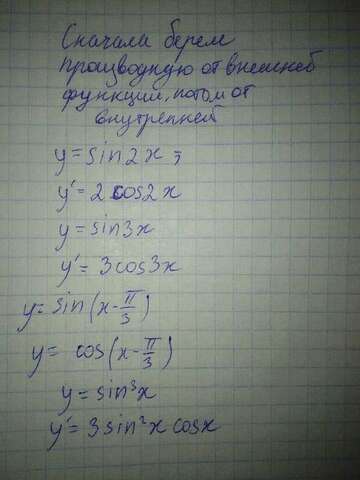 Сначала берем
производную от внешней
функции, потом от
внутренней
y = sin 2x ;
y' = 2 cos 2x
y = sin 3x
y' = 3 cos 3x
y = sin (x - π/3)
y = cos (x - π/3)
y = sin³x
y' = 3 sin²x cosx